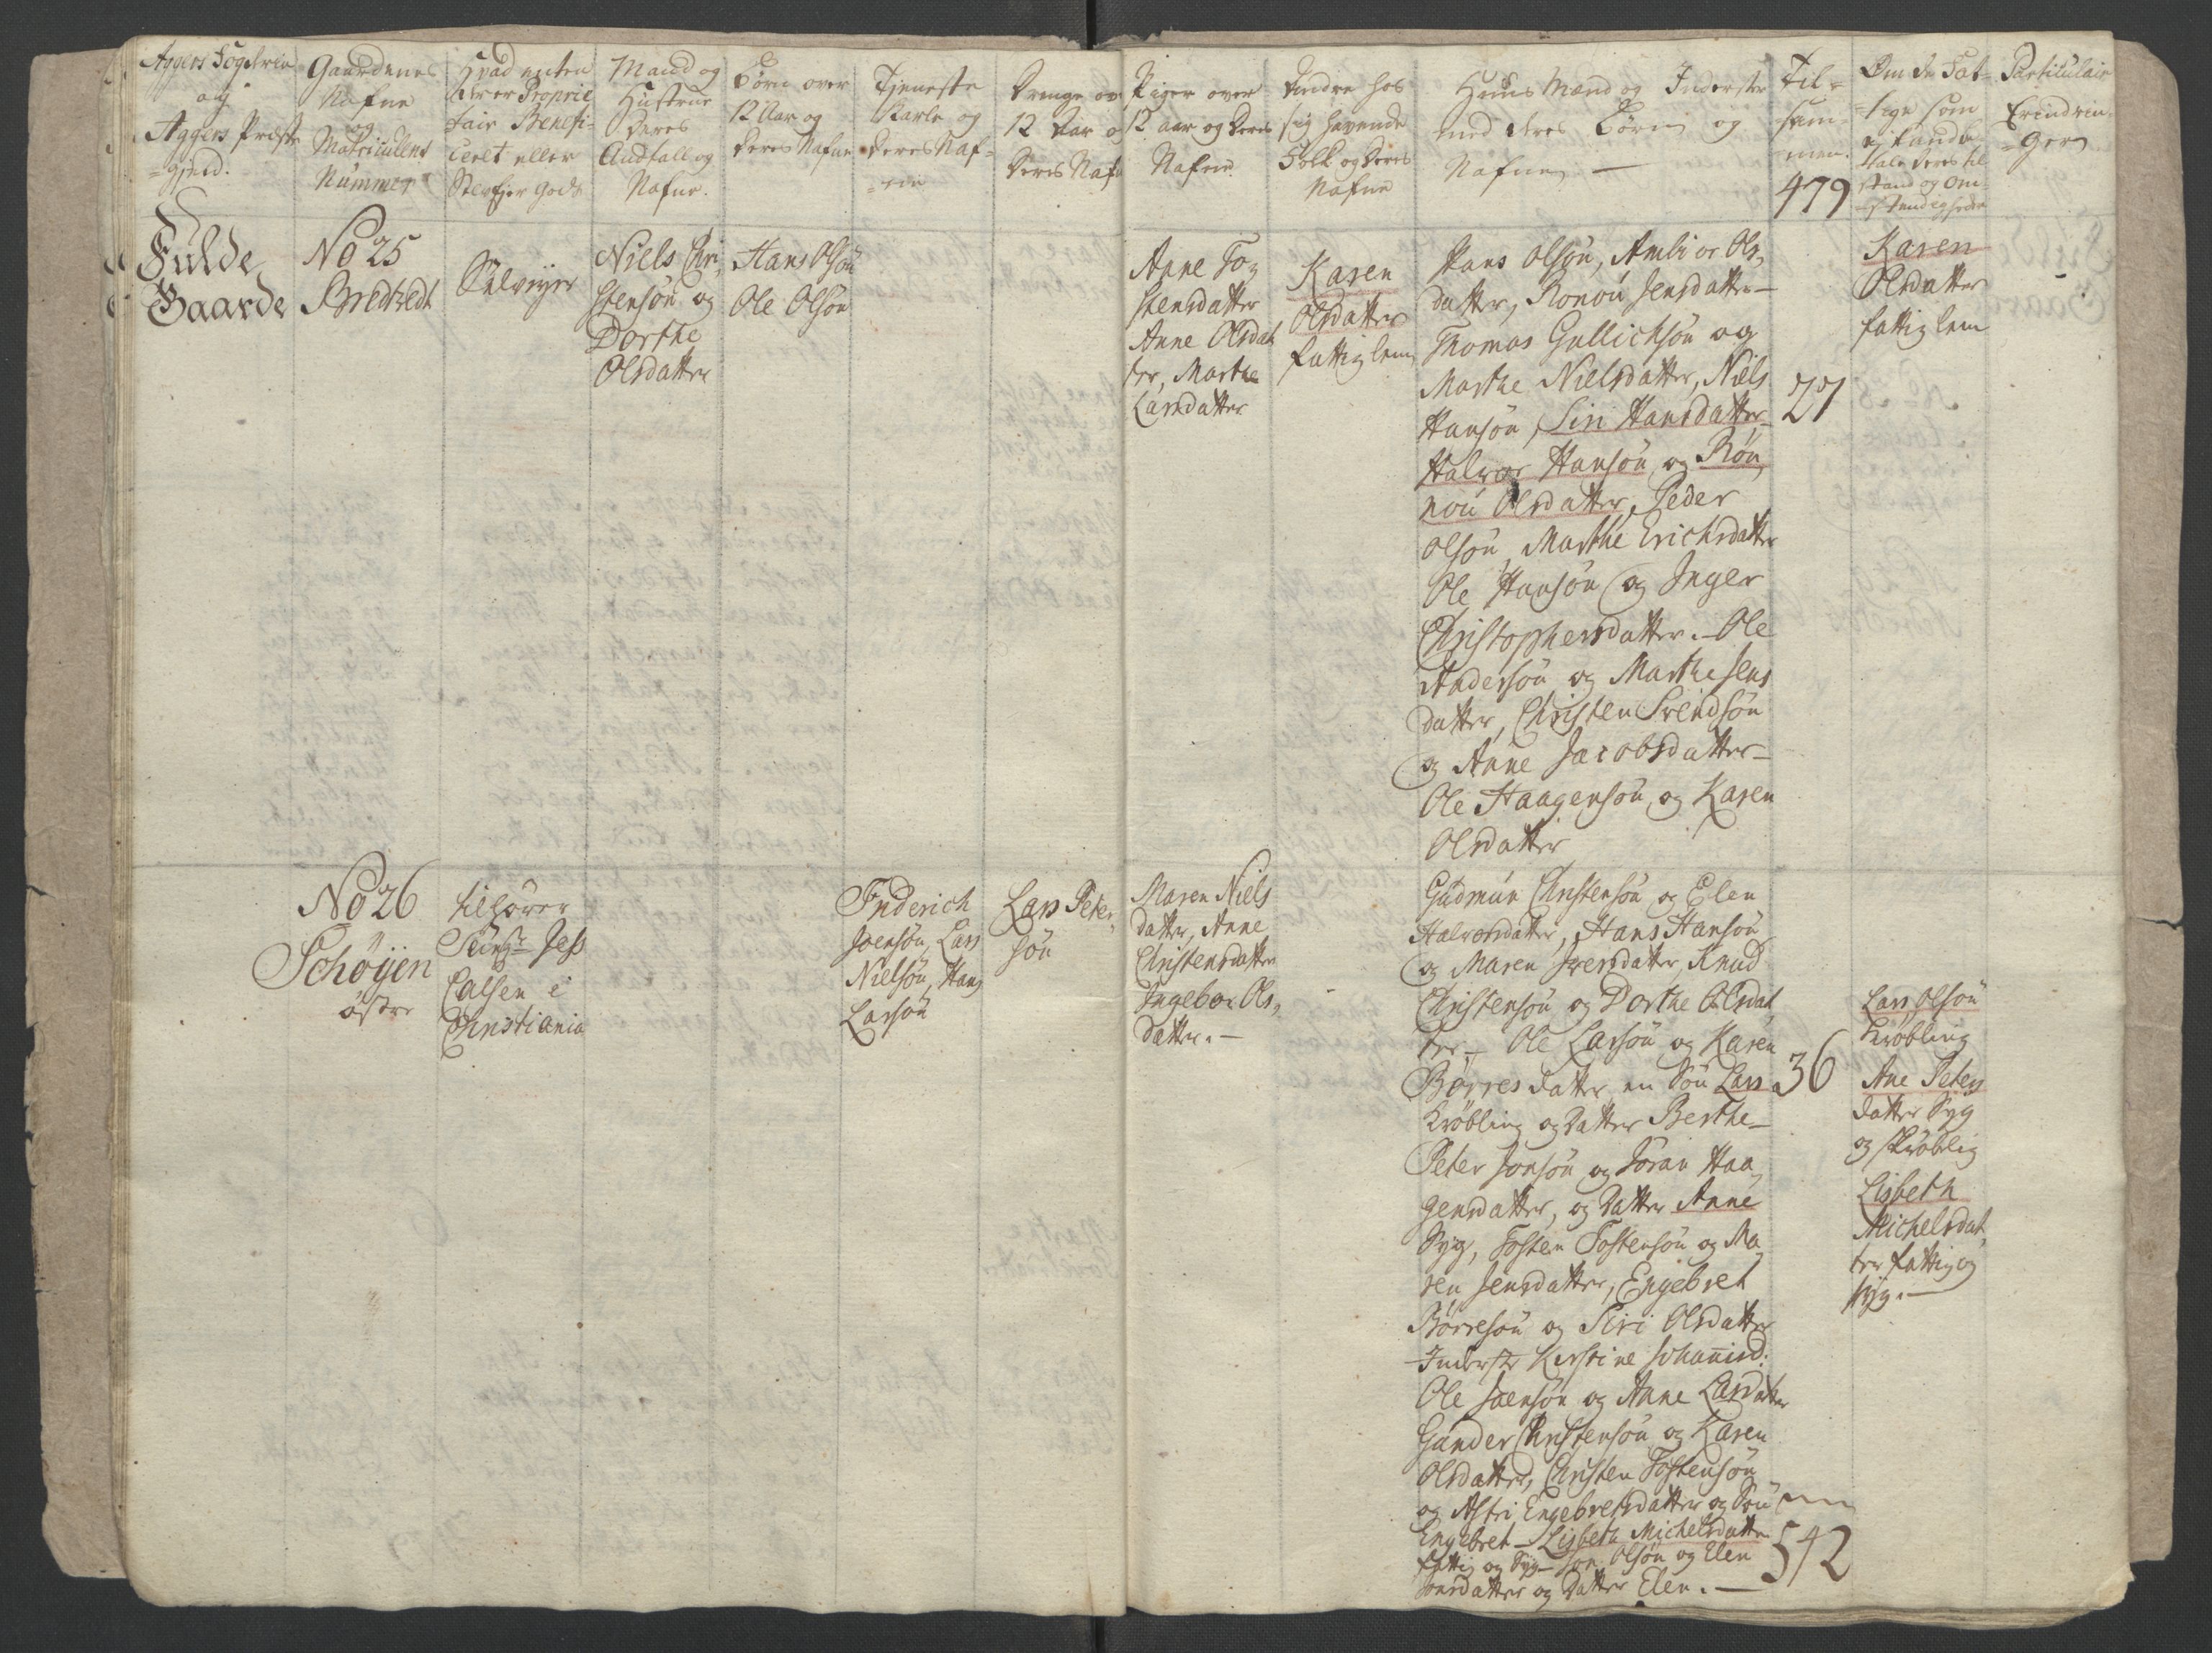 Aggers Fogderie
og
Aggers Præste
=gield.
Gaardenes
Nafne
og
Matriculens
Nummer
Hvad enten
de er Proprie
tair Benefi-
ceret eller
Mand og
Hustrue
Deres
Andtall og
Nafne.
Børn over
12 Aar og
Deres Nafne
Tieneste
Karle og
Deres Naf=
=ne
Drenge ov
12 Aar o
Deres Naf
Piger over
12 aar og Deres
Nafne
Andre hos
sig havende
Folk og Deres
Nafne
Huus Mænd og Inderster
med deres Børn og
Nafne —
Til=
sam=
men.
479
Om de Fat=
=tige som
Particulair
Erindrin=
=ger
Fulde
Gaarde
No 25
Bredtvedt
Selveyer
Niels Chri
stensøn og
Dorthe
Olsdatter
Hans Olsøn
Ole Olsøn
Anne To
stensdatter
Anne Olsdat
ter, Marthe
Larsdatter
Karen
Olsdatter
fattig lem
Hans Olsøn, Amli or Ols,
datter, Ronou Jensdatter —
Thomas Gullichsøn og
Marthe Nielsdatter, Niels
Hansøn, Siri Hansdatter
Halvor Hansøn og Røn
nou Olsdatter, Peder
Olsøn Marthe Erichsdatter
Ole Hansøn og Inger
Christophersdatter. — Ole
Andersøn og Marthe Jens
datter, Christen Svendsøn
og Anne Jacobsdatter —
Ole Haagensøn og Karen
Olsdatter
27
Karen
Olsdatter
fattig lem
No 26
Schøyen
østre
tilhører
Jess
Calsen i
Christiania
Friderich
Joensøn, Lars
Nielsøn, Hans
Larsøn
Lars Peter,
søn
Maren Niels
datter, Anne
Christensdatter
Ingebor Ols,
datter. —
Gudmun Christensøn og Elen
Halvorsdatter, Hans Hansøn
og Maren Iversdatter, Knud
Christensøn og Dorthe Olsdat
ter — Ole Larsøn og Karen
Børresdatter en Søn Lars
Krøbling og Datter Berthe —
Peter Jonsøn og Jøran Haa
gensdatter, og Datter Anne
Syg, Tosten Tostensøn og Ma
ren Jensdatter, Engebret
Børresøn og Siri Olsdatter
Inderste Kirstine Johannisd:
Ole Joensøn og Anne Larsdatter
Gunder Christensøn og Karen
Olsdatter, Christen Tostensøn
og Astri Engebretsdatter og Søn
Engebret — Lisbeth Michelsdatter
fattig og Syg — Jon Olsøn og Elen
Jonsdatter og Datter Elen. —
36
542
Lars Olsøn
Krøbling
Ane Peters
datter Syg
og skrøblig
Lisbeth
Michelsdat,
ter fattig og
syg. —